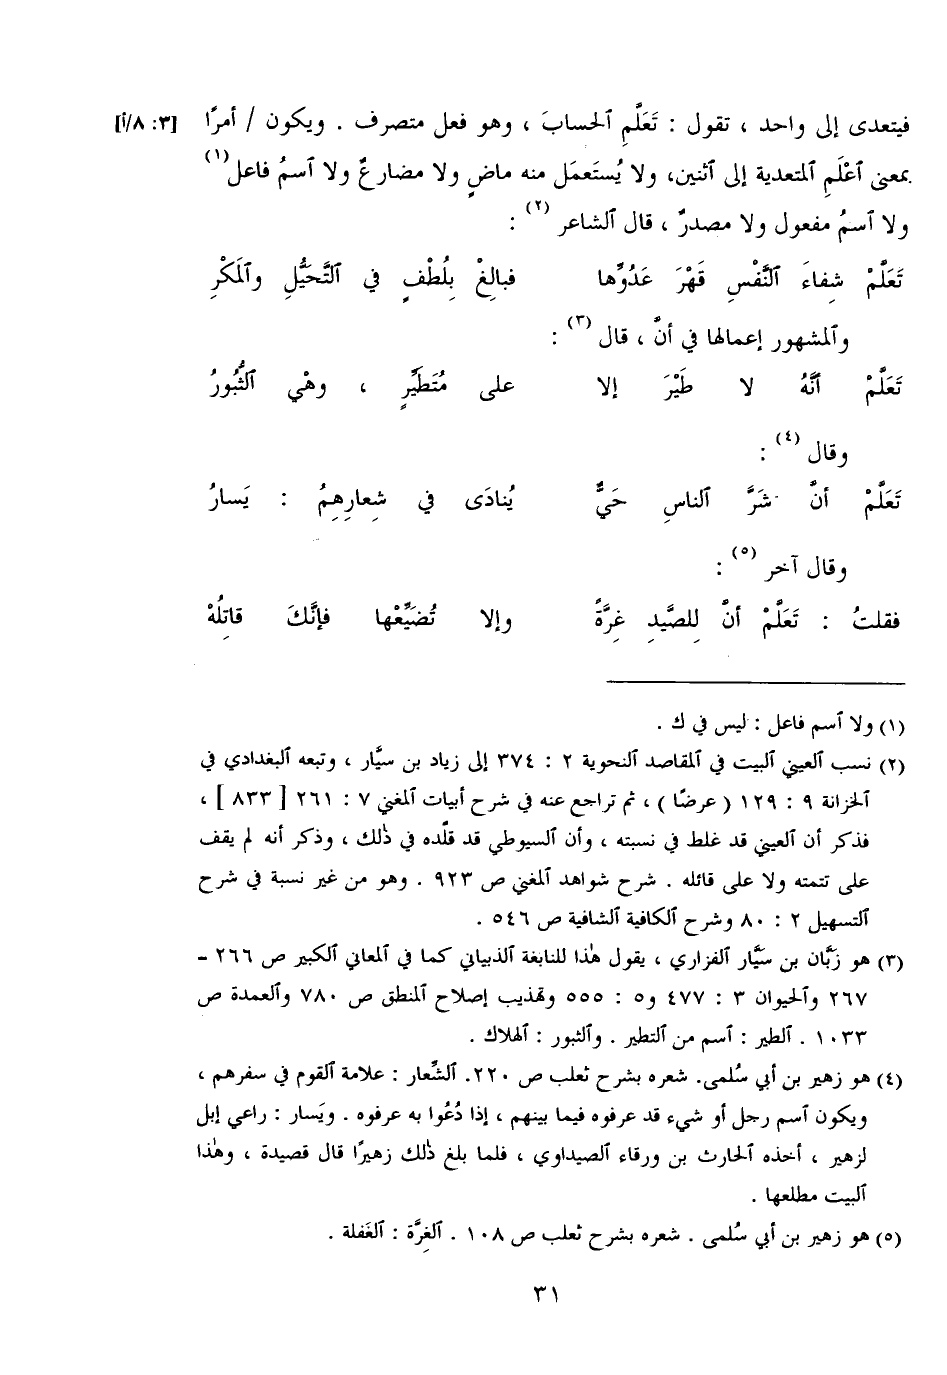 فيتعدى إلى واحد ، تقول : تَعَلَّمِ ٱلحسابَ ، وهو فعل متصرف . ويكون / أمرًا [٣: ٨/أ]
بمعنى ٱعْلَمِ ٱلمتعدية إلى ٱثنين، ولا يُستَعمَل منه ماضٍ ولا مضارعٌ ولا ٱسمُ فاعل(١)
ولا ٱسمُ مفعول ولا مصدرٌ ، قال ٱلشاعر (٢) :
تَعَلَّمْ شِفاءَ ٱلنَّفْسِ قَهْرَ عَدُوِّها فبالِغْ بِلُطْفٍ في ٱلتَّحَيُّلِ وٱلمَكْرِ
وٱلمشهور إعمالها في أنَّ ، قال (٣) :
تَعَلَّمْ أنَّهُ لا طَيْرَ إلا على مُتَطَيِّرٍ ، وهْي ٱلثُّبُورُ
وقال (٤) :
تَعَلَّمْ أنَّ شَرَّ ٱلناسِ حَيٌّ يُنادَى في شِعارِهِمُ : يَسارُ
وقال آخر (٥) :
فقلتُ : تَعَلَّمْ أنَّ لِلصَّيدِ غِرَّةً وإلا تُضَيِّعْها فإنَّكَ قاتِلُهْ
(١) ولا ٱسم فاعل : ليس في ك .
(٢) نسب ٱلعيني ٱلبيت في ٱلمقاصد ٱلنحوية ٢ : ٣٧٤ إلى زياد بن سيَّار ، وتبعه ٱلبغدادي في
ٱلخزانة ٩ : ١٢٩ ( عرضًا ) ، ثم تراجع عنه في شرح أبيات ٱلمغني ٧ : ٢٦١ [ ٨٣٣ ] ،
فذكر أن ٱلعيني قد غلط في نسبته ، وأن ٱلسيوطي قد قلَّده في ذٰلك ، وذكر أنه لم يقف
على تتمته ولا على قائله . شرح شواهد ٱلمغني ص ٩٢٣ . وهو من غير نسبة في شرح
ٱلتسهيل ٢ : ٨٠ وشرح ٱلكافية ٱلشافية ص ٥٤٦ .
(٣) هو زَبَّان بن سَيَّار ٱلفزاري ، يقول هٰذا للنابغة ٱلذبياني كما في ٱلمعاني ٱلكبير ص ٢٦٦ -
٢٦٧ وٱلحيوان ٣ : ٤٧٧ و٥ : ٥٥٥ وتهذيب إصلاح ٱلمنطق ص ٧٨٠ وٱلعمدة ص
١٠٣٣ . ٱلطير : ٱسم من ٱلتطير . وٱلثبور : ٱلهلاك .
(٤) هو زهير بن أبي سُلمى. شعره بشرح ثعلب ص ٢٢٠. ٱلشِّعار : علامة ٱلقوم في سفرهم ،
ويكون ٱسم رجل أو شيء قد عرفوه فيما بينهم ، إذا دُعُوا به عرفوه . ويَسار : راعي إبل
لزهير ، أخذه ٱلحارث بن ورقاء ٱلصيداوي ، فلما بلغ ذٰلك زهيرًا قال قصيدة ، وهٰذا
ٱلبيت مطلعها .
(٥) هو زهير بن أبي سُلمى . شعره بشرح ثعلب ص ١٠٨ . ٱلغِرَّة : ٱلغَفلة .
٣١